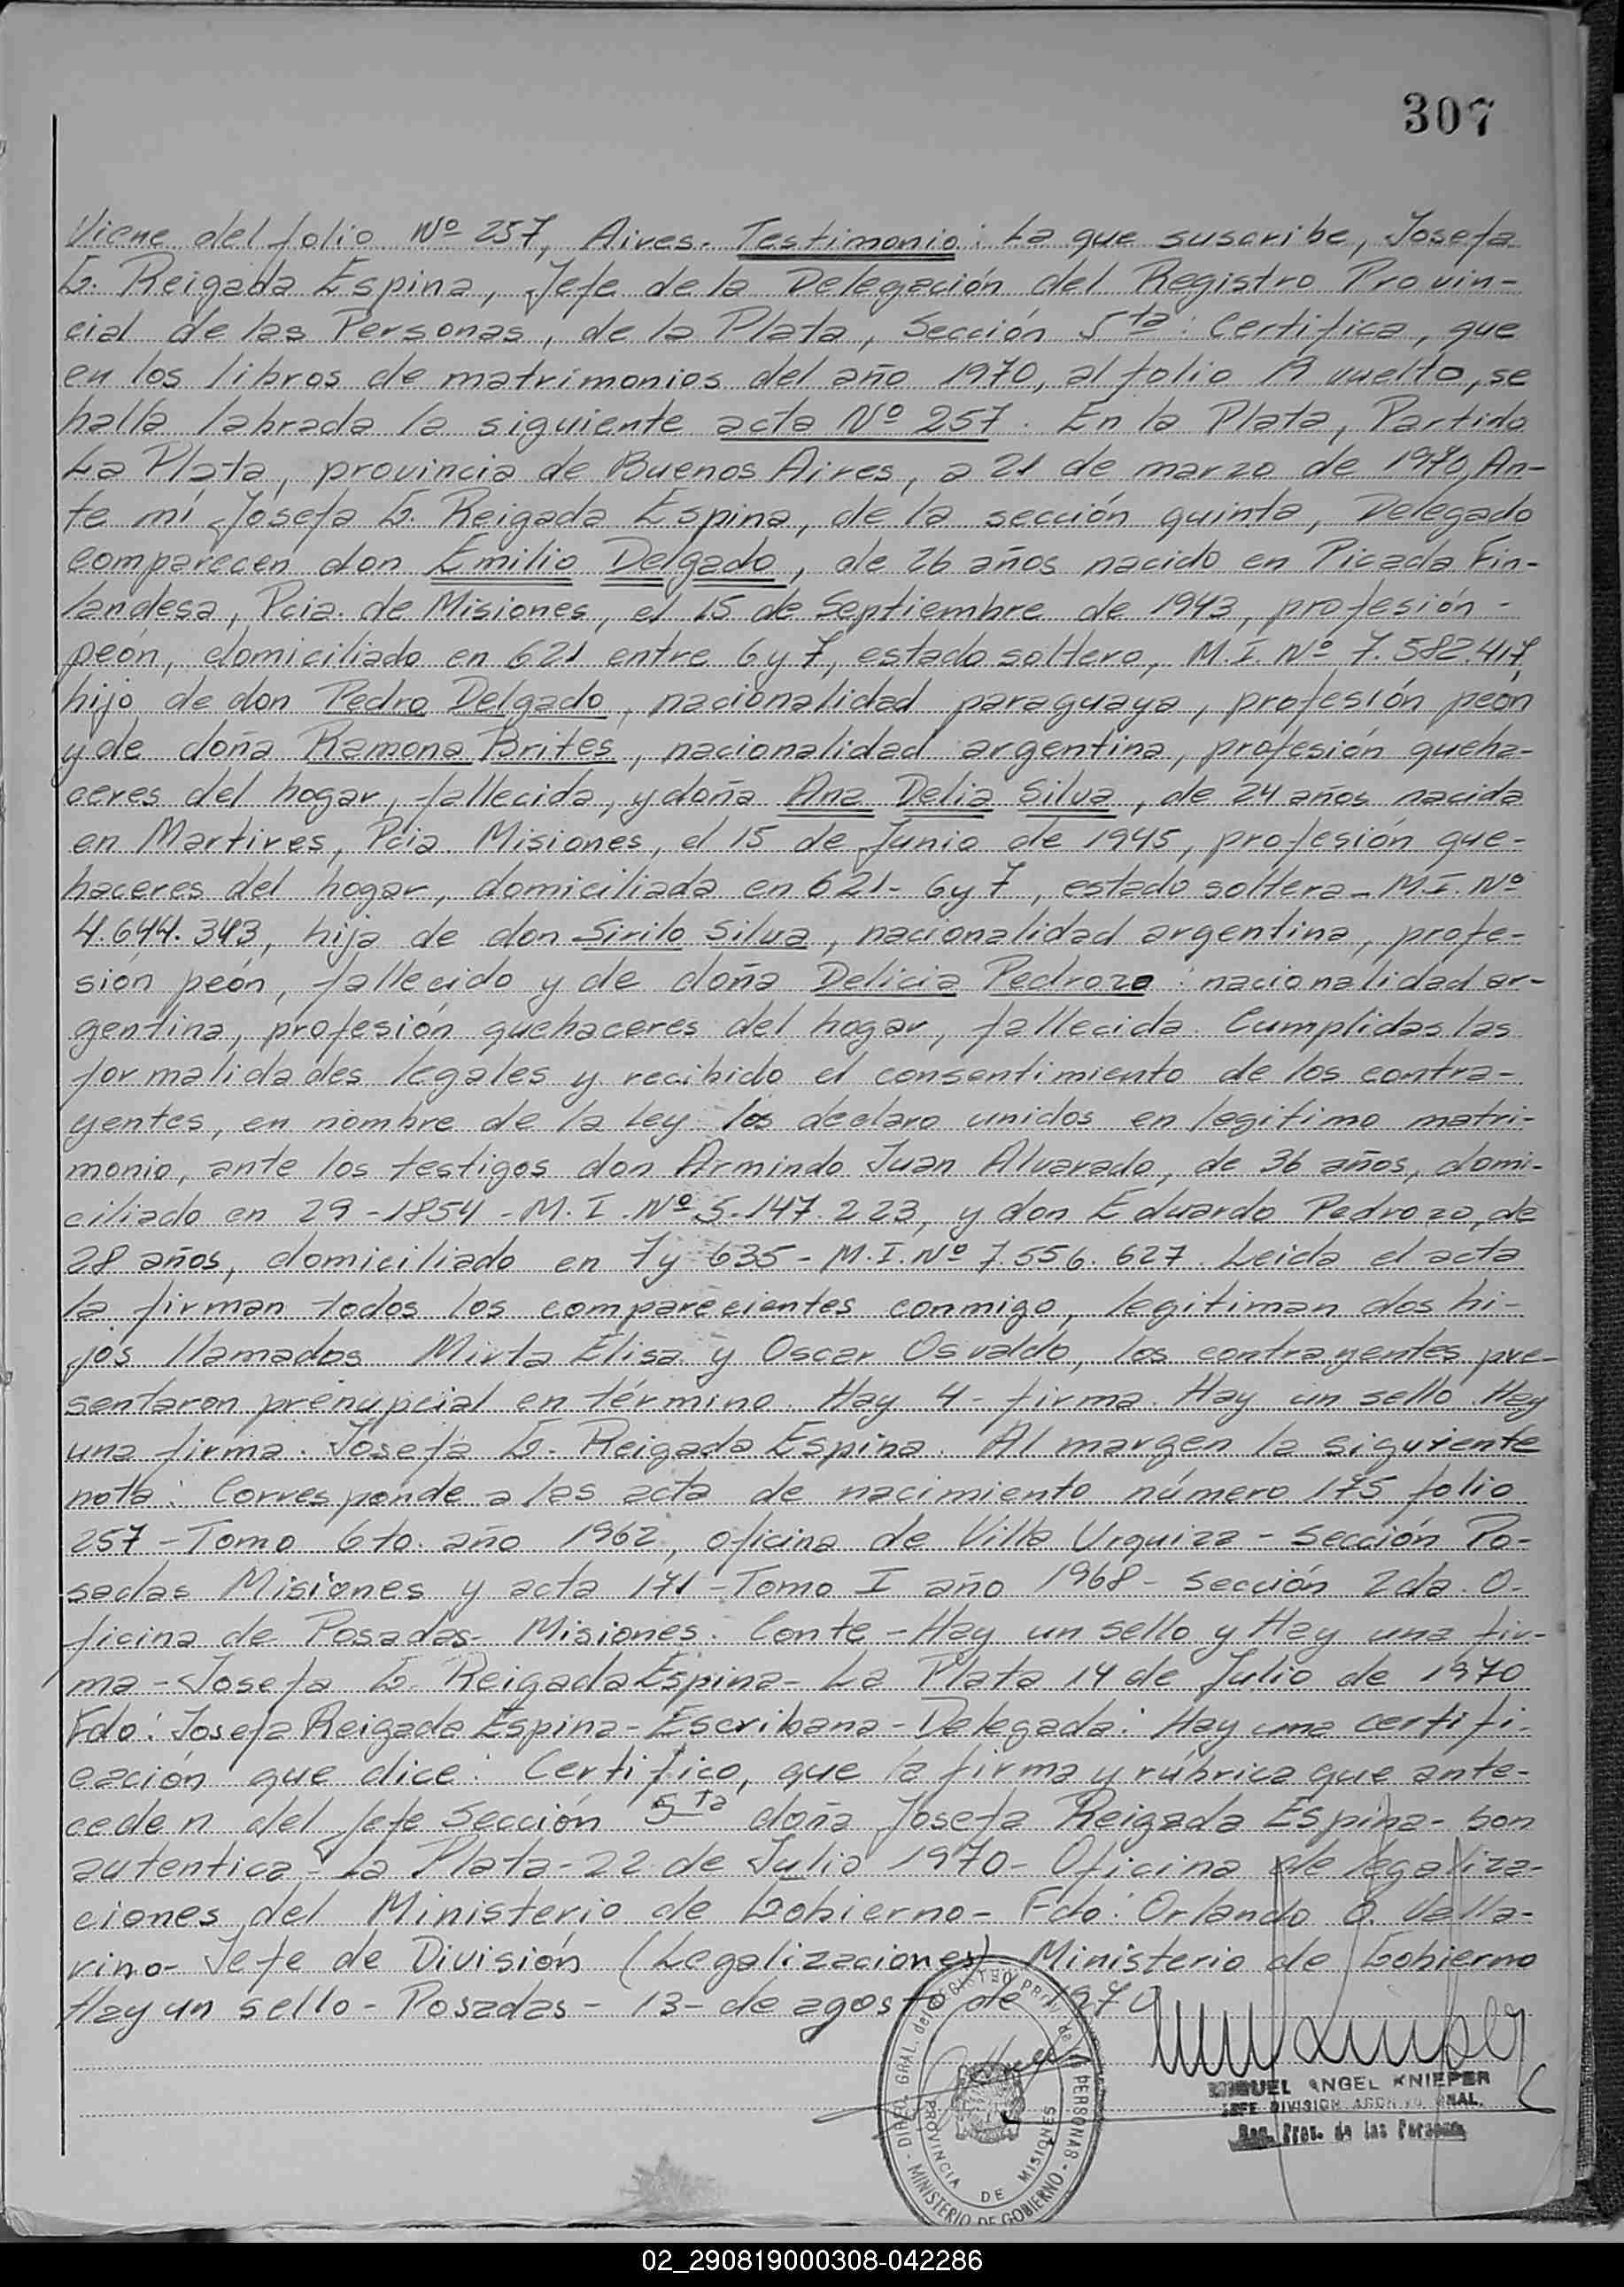 307
Viene del folio Nº 257, Aires. Testimonio: La que suscribe, Josefa
G. Reigada Espina, Jefe de la Delegación del Registro Provin-
cial de las Personas, de la Plata, Sección 5ta: Certifica, que
en los libros de matrimonios del año 1970, al folio 19 vuelto, se
halla labrada la siguiente acta Nº 257. En la Plata, Partido
La Plata, provincia de Buenos Aires, a 21 de marzo de 1970, An-
te mi Josefa G. Reigada Espina, de la sección quinta, Delegado
comparecen don Emilio Delgado, de 26 años nacido en Picada Fin-
landesa, Pcia. de Misiones, el 15 de Septiembre de 1943, profesión -
peón, domiciliado en 621 entre 6 y 7, estado soltero, M.I. Nº 7.582.417,
hijo de don Pedro Delgado, nacionalidad paraguaya, profesión peón
y de doña Ramona Brites, nacionalidad argentina, profesión queha-
ceres del hogar, fallecida, y doña Ana Delia Silva, de 24 años nacida
en Martires, Pcia. Misiones, el 15 de Junio de 1945, profesión que-
haceres del hogar, domiciliada en 621- 6 y 7, estado soltera - M.I. Nº
4.644.343, hija de don Sirilo Silva, nacionalidad argentina, profe-
sión peón, fallecido y de doña Delicia Pedrozo: nacionalidad ar-
gentina, profesión quehaceres del hogar, fallecida. Cumplidas las
formalidades legales y recibido el consentimiento de los contra-
yentes, en nombre de la Ley los declaro unidos en legitimo matri-
monio, ante los testigos don Armindo Juan Alvarado, de 36 años, domi-
ciliado en 29 - 1854 - M. I. Nº 5.147.223, y don Eduardo Pedrozo, de
28 años, domiciliado en 7 y 635 - M.I. Nº 7.556.627. Leida el acta
la firman todos los comparecientes conmigo, legitiman dos hi-
jos llamados Mirta Elisa y Oscar Osvaldo, los contrayentes pre-
sentaron prenupcial en término. Hay 4 - firma. Hay un sello. Hay
una firma. Josefa G. Reigada Espina. Al margen la siguiente
nota: Corresponde a las acta de nacimiento número 175 folio
257 - Tomo 6to. año 1962, oficina de Villa Urquiza - Sección Po-
sadas Misiones y acta 171 - Tomo I año 1968 - Sección 2da. O-
ficina de Posadas - Misiones. Conte - Hay un sello y Hay una fir-
ma - Josefa G. Reigada Espina - La Plata 14 de Julio de 1970
Fdo: Josefa Reigada Espina - Escribana - Delegada: Hay una certifi-
cación que dice: Certifico, que la firma y rúbrica que ante-
ceden del Jefe Sección 5ta doña Josefa Reigada Espina - son
autentica - La Plata - 22 de Julio 1970 - Oficina de legaliza-
ciones del Ministerio de Gobierno - Fdo: Orlando O. Valla-
rino - Jefe de División (Legalizaciones) Ministerio de Gobierno
Hay un sello - Posadas - 13 - de agosto de 1970
DIREC. GRAL. del REGISTRO PROV. de las PERSONAS - MINISTERIO DE GOBIERNO -
PROVINCIA DE MISIONES
MIGUEL ANGEL KNIEPER
JEFE DIVISION
Reg. Prov. de las Personas
02_290819000308-042286